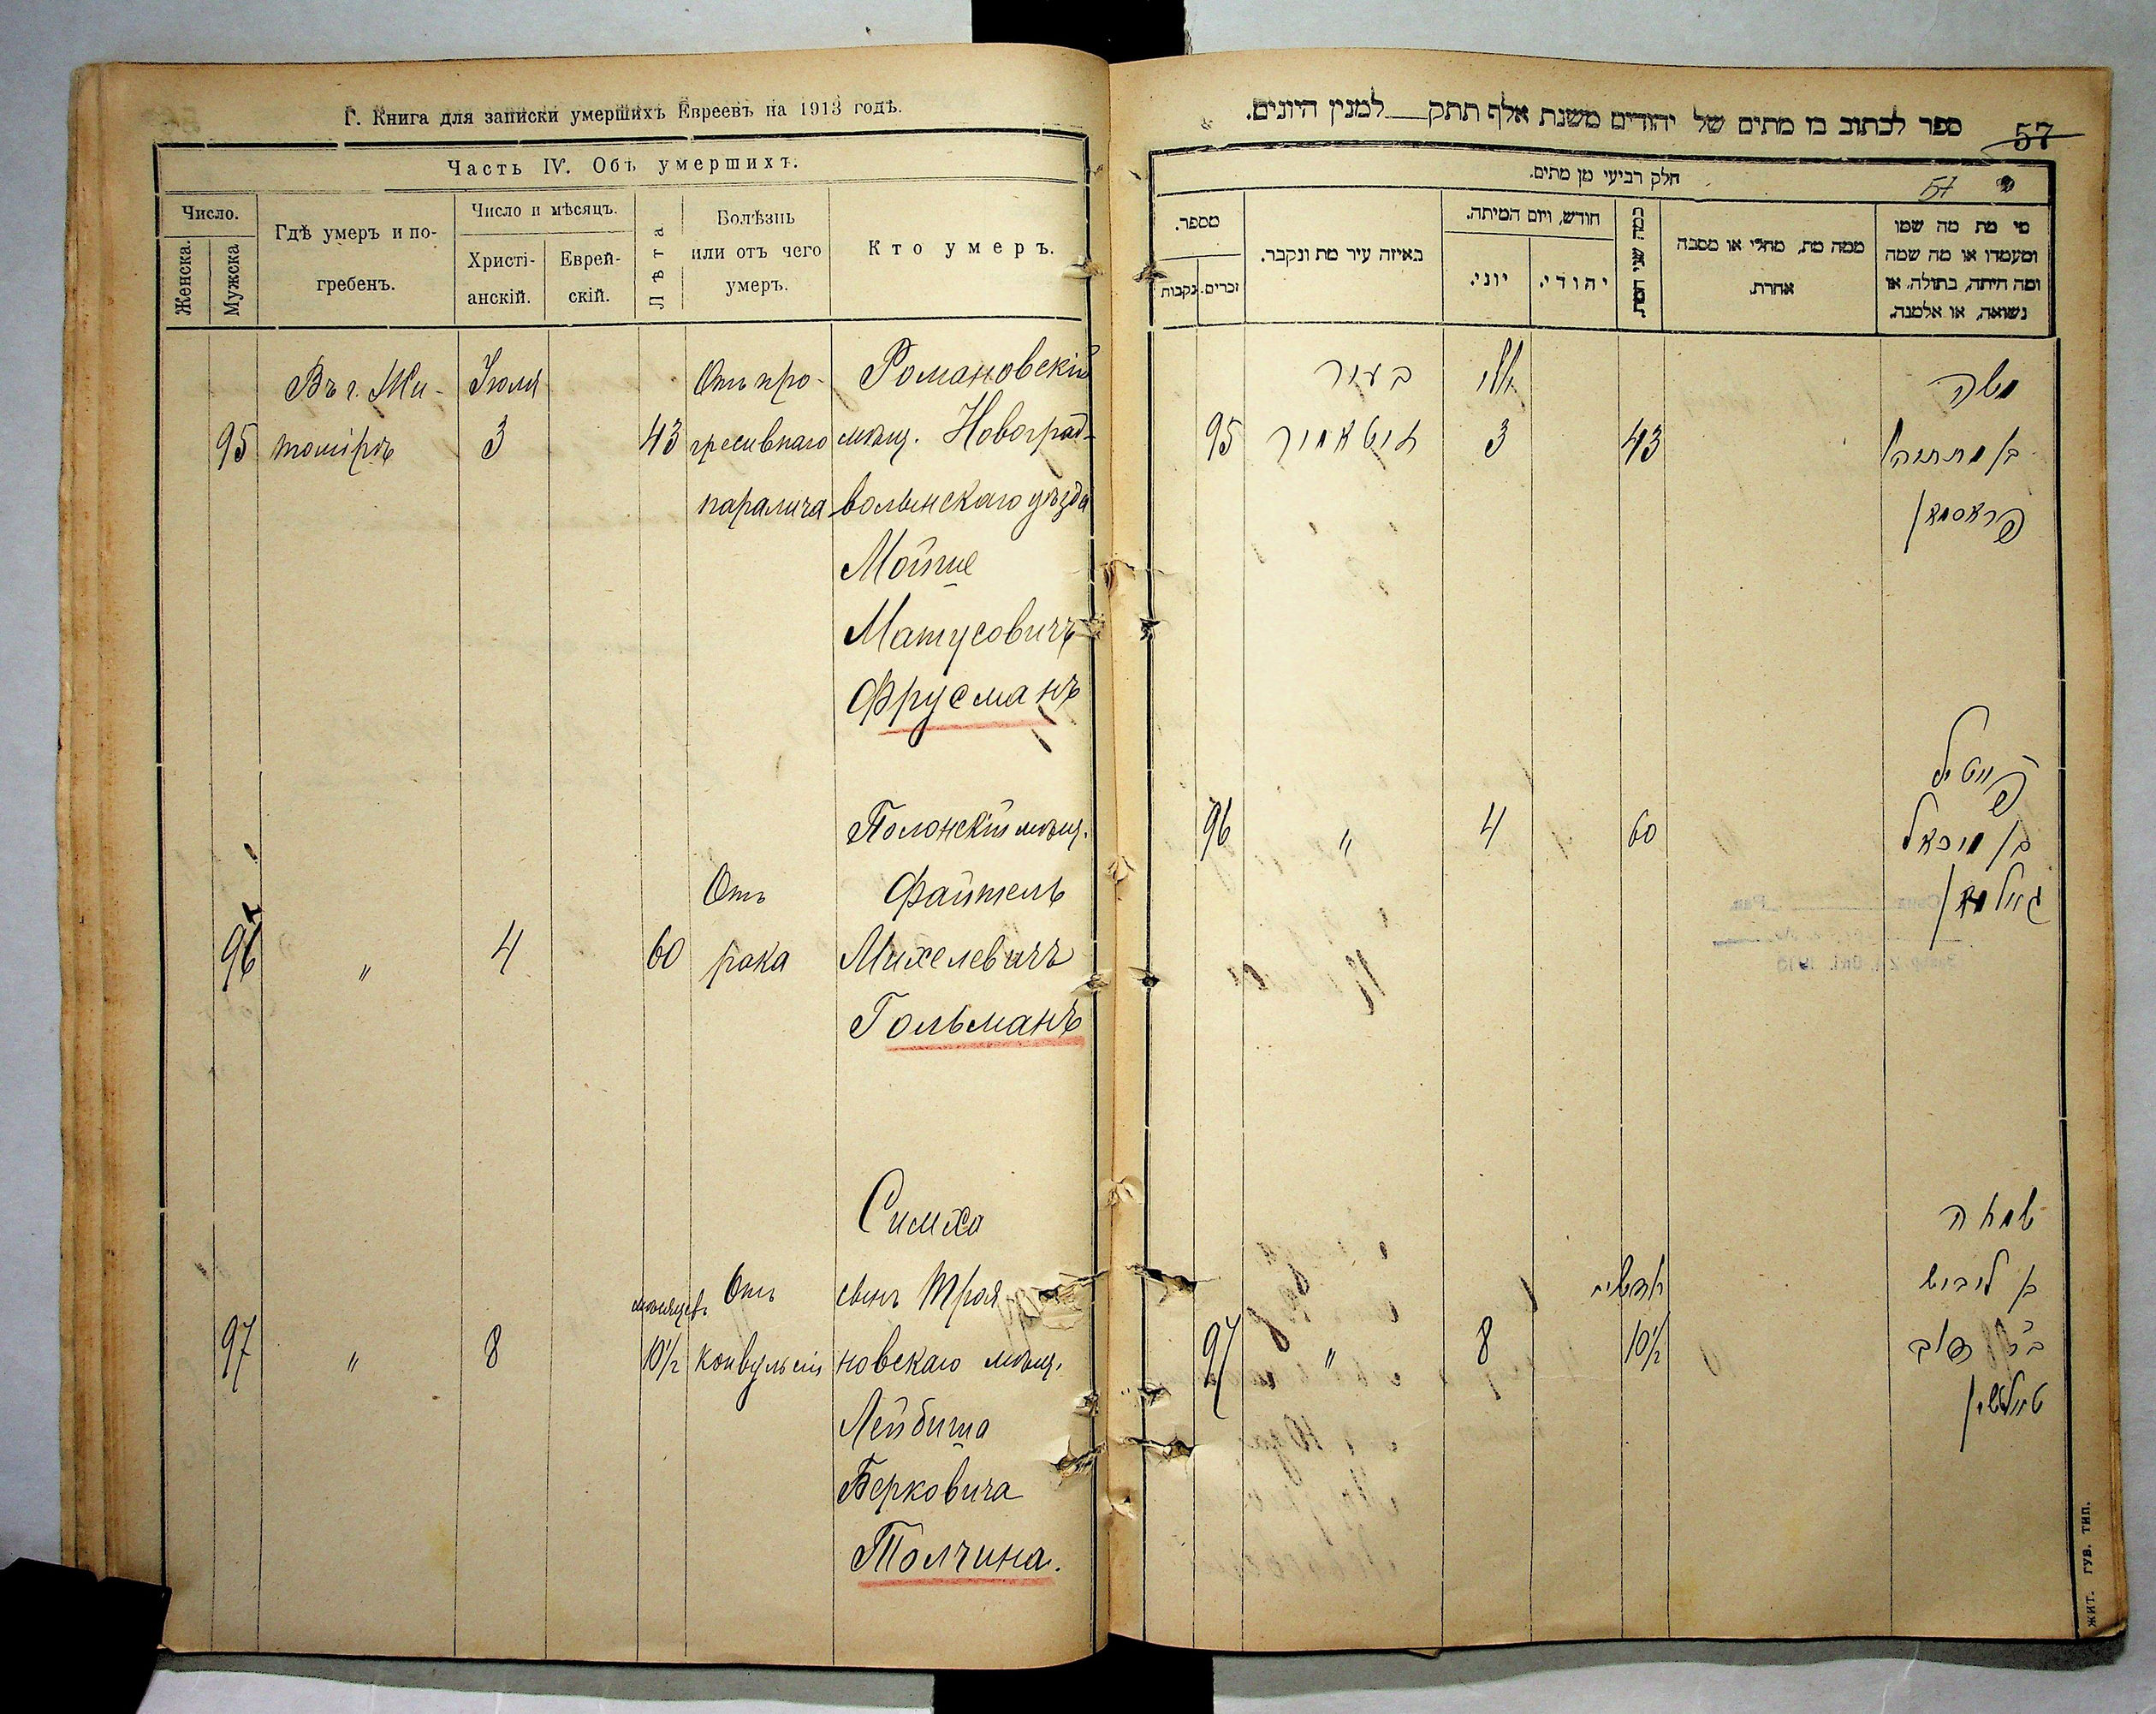 Г. Книга для записки умершихъ Евреевъ на 1913 годъ.
Часть IV. Объ умершихъ.
Число.
Женска.
Мужска
Гдѣ умеръ и по-
гребенъ.
Число и мѣсяцъ.
Христі-
анскій.
Еврей-
скій.
Лѣта
Болѣзнь
или отъ чего
умеръ.
Кто умеръ.
Въ г. Жи- Іюля Отъ про- Романовскій
95 томірѣ 3 43 гресивнаго мѣщ. Новоград-
паралича волынскаго уѣзда
Мойше
Матусовичъ
Фрусманъ
Полонскій мѣщ.
Отъ Файтель
96 " 4 60 рака Михелевичъ
Гольманъ
Симха
мѣсяцевъ Отъ сынъ Троя
97 " 8 10½ конвульсіи новскаго мѣщ.
Лейбиша
Берковича
Толчина.
ספר לכתוב בו מתים של יהודים משנת אלף תתק למנין היונים.
57
חלק רביעי מן מתים.
57
מספר.
זכרים.
נקבות
באיזה עיר מת ונקבר.
חודש, ויום המיתה.
יוני.
יהודי.
כמה שני המת
ממה מת, מחלי או מסבה
אחרת.
מי מת מה שמו
ומעמדו או מה שמה
ומה היתה, בתולה, או
נשואה, או אלמנה.
משה
בעיר יולי
95 זיטאמיר 3 43 בן מתתיהו
פראסמאן
פייטיל
96 " 4 60 בן מיכאל
גאלמאן
שמחה
חדשים בן ליביש
97 " 8 10½ ב"ר
טאלטשין
ЖИТ. ГУБ. ТИП.